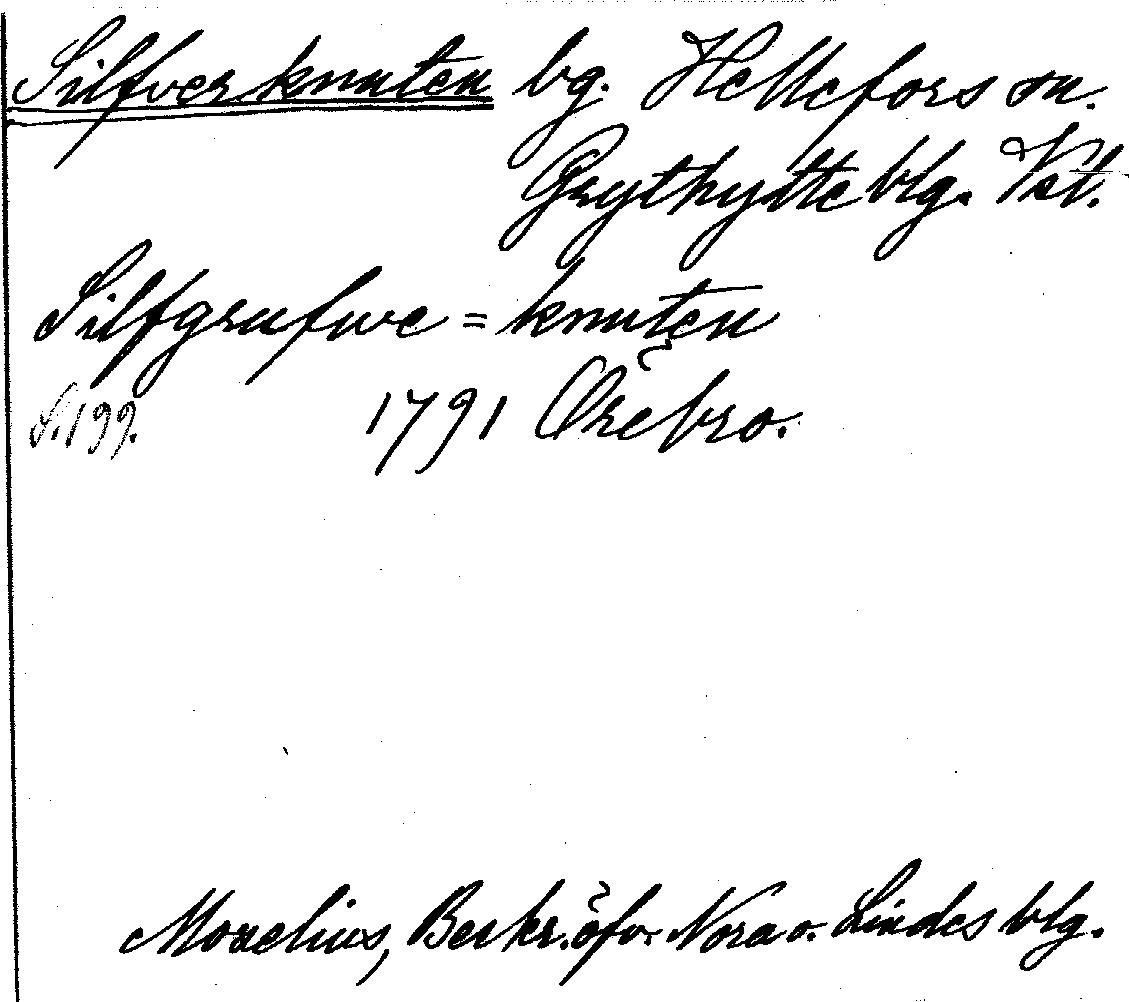 Silfverknuten bg. Hellefors sn.
Grythytte blg. Vstl.
Silfgrufwe=knuten
S. 199. 1791 Örebro.
Morelius, Beskr. öfv. Nora o. Lindes blg.